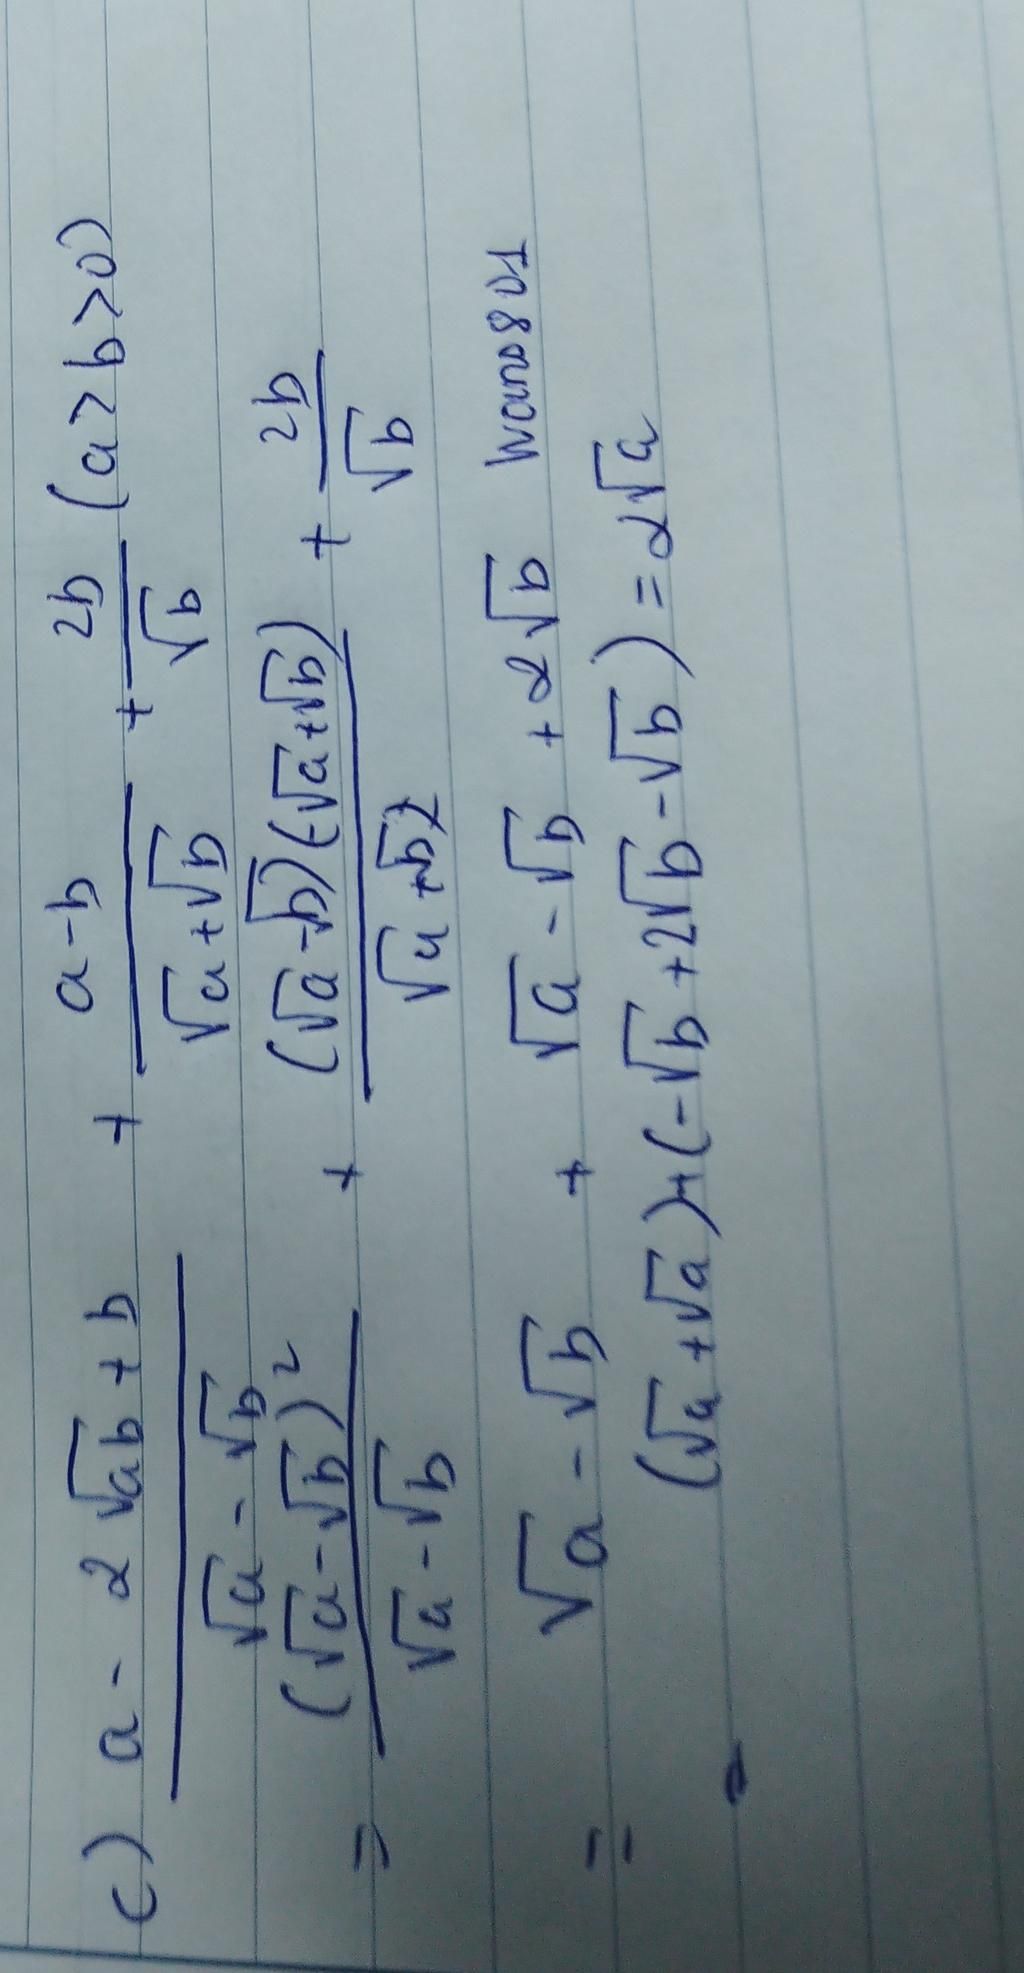 c) a - 2√ab + b / √a - √b + a-b / √a+√b + 2b / √b (a > b > 0)
= (√a-√b)² / √a-√b + (√a-√b)(√a+√b) / √a+√b + 2b / √b
= √a - √b + √a - √b + 2√b wano801
(√a+√a)+(-√b+2√b-√b) = 2√a